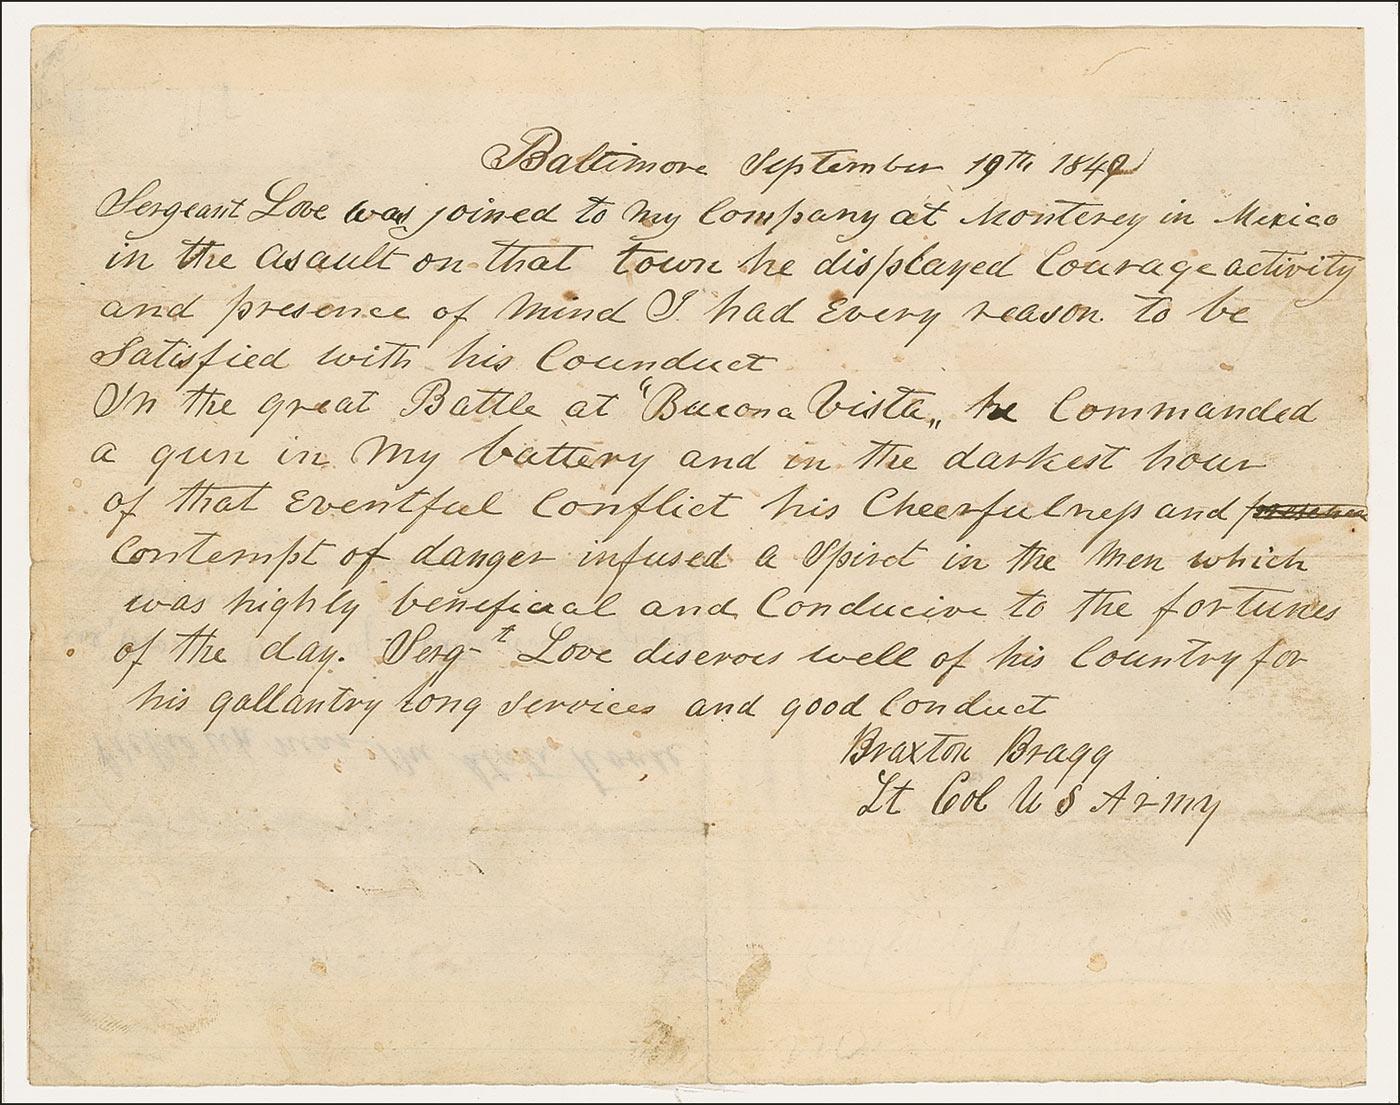 Baltimore September 19th 1849
Sergeant Love was joined to my Company at Monterey in Mexico
in the asault on that town he displayed Courage activity
and presence of mind I had Every reason to be
Satisfied with his Counduct
In the great Battle at "Bucona Vista„ he Commanded
a gun in my battery and in the darkest hour
of that Eventful Conflict his Cheerfulness and
Contempt of danger infused a Spirot in the men which
was highly beneficial and Conducive to the fortunes
of the day. Serg-t Love diserves well of his Country for
his gallantry long services and good Conduct
Braxton Bragg
Lt Col U S Army